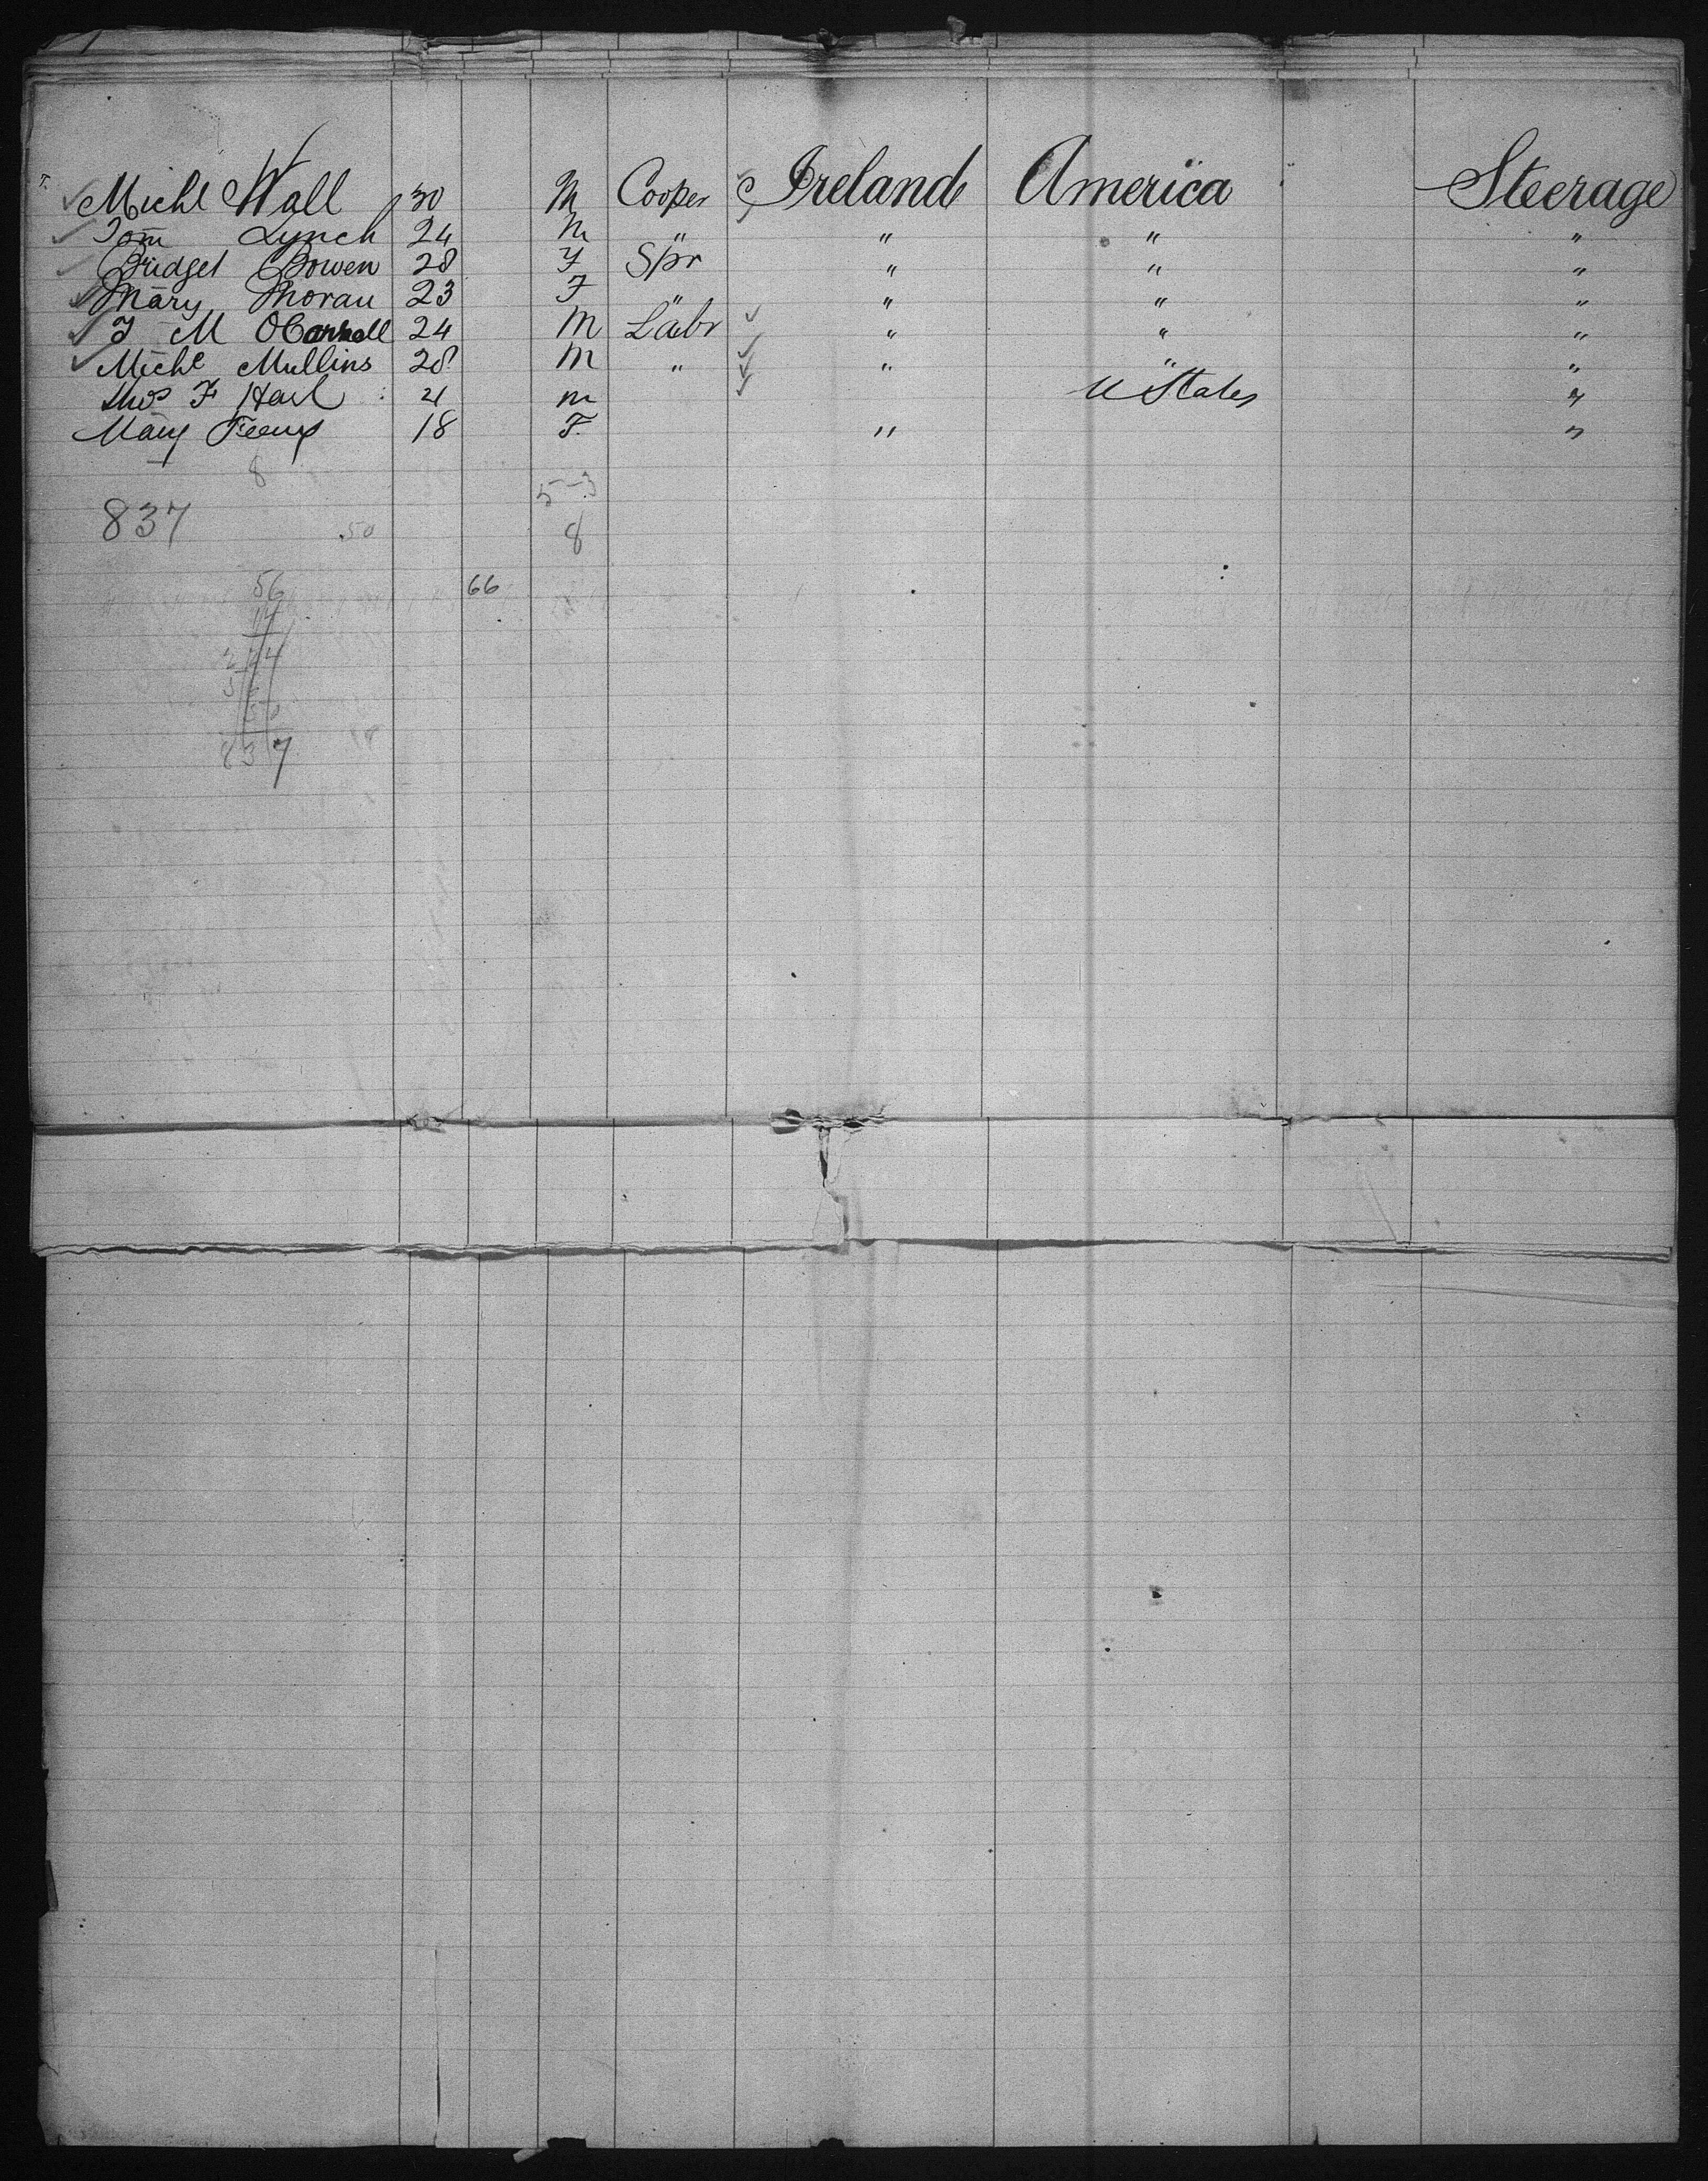 Michl Wall 30 M Cooper Ireland America Steerage
Tom Lynch 24 M " " " "
Bridget Bowen 28 F Spr " " "
Mary Moran 23 F " " " "
J M OConnell 24 M Labr " " "
Michl Mullins 28 M " " " "
Thos F Hart 21 m U States "
Mary Feeny 18 F. " "
8
5-3
837 50 8
56 66
837